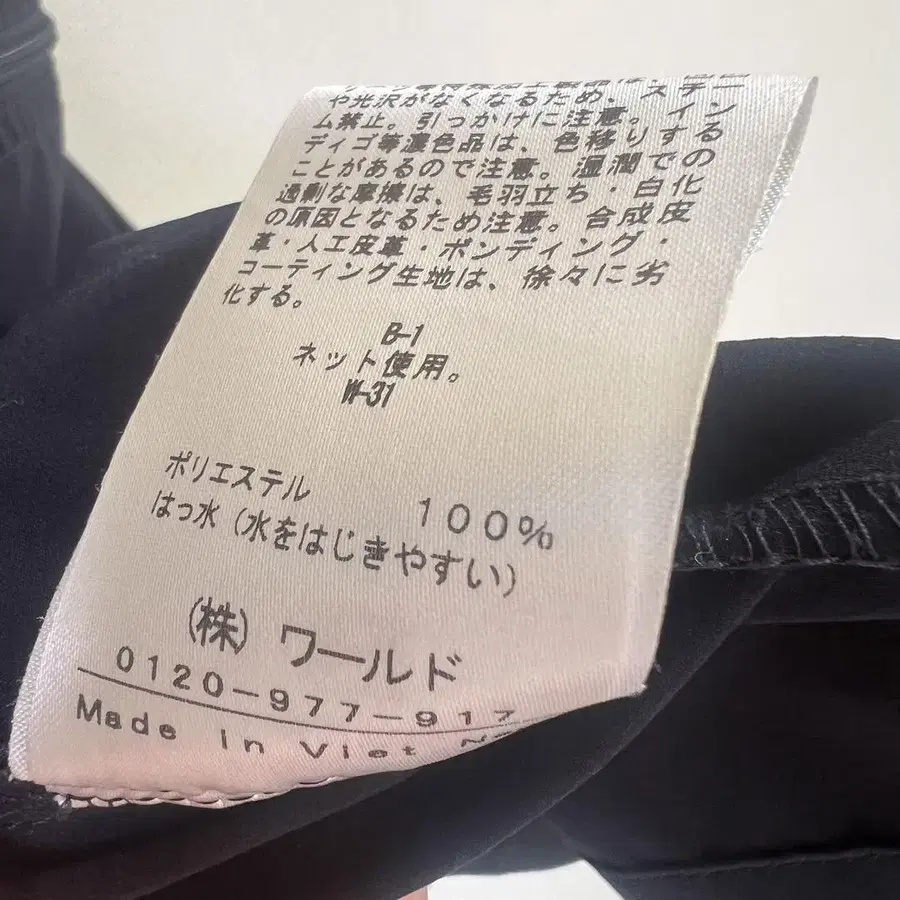 や光沢がなくなるため、スチー
ム禁止。引っかけに注意。イン
ディゴ等濃色品は、色移りする
ことがあるので注意。湿潤での
過剰な摩擦は、毛羽立ち・白化
の原因となるため注意。合成皮
革・人工皮革・ボンディング・
コーティング生地は、徐々に劣
化する。
B-1
ネット使用。
W-31
ポリエステル 100%
はっ水（水をはじきやすい）
(株) ワールド
0120-977-917
Made in Viet